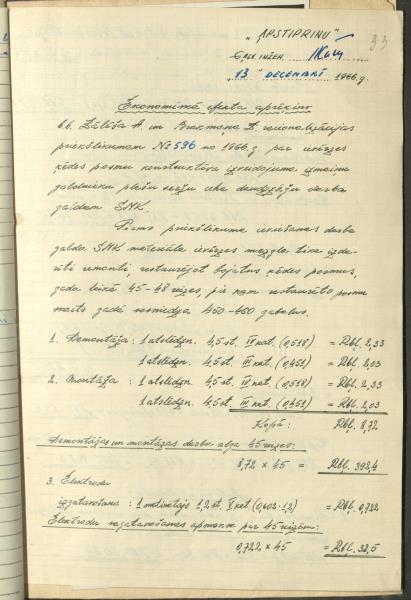 33
"APSTIPRINU"
GALV. INŽEN.
"13" DECEMBRĪ 1966. g.
Ekonomiskā efekta aprēķins
b.b. Zālīša A. un Brakmaņa Z. racionalizācijas
priekšlikumam № 596 no 1966. g. par
ķēdes posmu konstruktīva izveidojuma izmaiņu
gateru cha darba
galdam SMK.
Pirms priekšlikuma ieviešanas darba
galda SMK materiāla mezgla tika izda-
rīti remonti, restaurējot bojātus ķēdes posmus,
gada laikā 45-48 reizes, pie kam restaurēto posmu
skaits gadā sasniedza 450-460 gabalus.
1. Demontāža : 1 atslēdzn. 4,5 st. IV kat. (0,518) = Rbļ. 2,33
1 atslēdzn. 4,5 st. III kat. (0,451) = Rbļ. 2,03
2. Montāža : 1 atslēdzn. 4,5 st. IV kat. (0,518) = Rbļ. 2,33
1 atslēdzn. 4,5 st. III kat. (0,451) = Rbļ. 2,03
Kopā: Rbļ. 8,72
Demontāžas un montāžas darba alga 45 reizes:
8,72 x 45 = Rbļ. 392,4
3. Elektrodu
izgatavošana : 1 metinātājs 1,2 st. V kat. (0,602·1,2) = Rbļ. 0,722
Elektrodu izgatavošanas apmaksa par 45 reizēm:
0,722 x 45 = Rbļ. 32,5